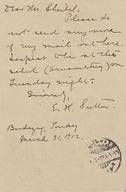 Dear Mr. Sheikel,
Please do
not send any more
of my mail out here.
Expect to be at the
school (
Tuesday night.
Sincerely,
E. K. Sutton
Budapest, Sunday
March 31, 1912.